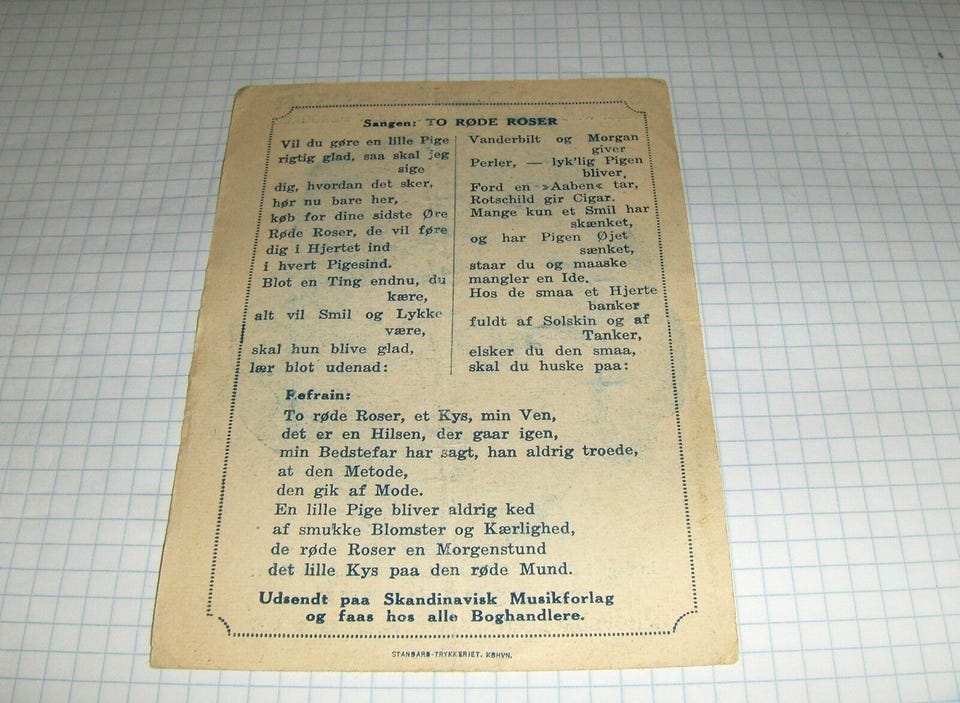 Sangen: TO RØDE ROSER
Vil du gøre en lille Pige
rigtig glad, saa skal jeg
sige
dig, hvordan det sker,
hør nu bare her,
køb for dine sidste Øre
Røde Roser, de vil føre
dig i Hjertet ind
i hvert Pigesind.
Blot en Ting endnu, du
kære,
alt vil Smil og Lykke
være,
skal hun blive glad,
lær blot udenad:
Vanderbilt og Morgan
giver
Perler, — lyk'lig Pigen
bliver,
Ford en »Aaben« tar,
Rotschild gir Cigar.
Mange kun et Smil har
skænket,
og har Pigen Øjet
sænket,
staar du og maaske
mangler en Ide.
Hos de smaa et Hjerte
banker
fuldt af Solskin og af
Tanker,
elsker du den smaa,
skal du huske paa:
Refrain:
To røde Roser, et Kys, min Ven,
det er en Hilsen, der gaar igen,
min Bedstefar har sagt, han aldrig troede,
at den Metode,
den gik af Mode.
En lille Pige bliver aldrig ked
af smukke Blomster og Kærlighed,
de røde Roser en Morgenstund
det lille Kys paa den røde Mund.
Udsendt paa Skandinavisk Musikforlag
og faas hos alle Boghandlere.
STANDARD-TRYKKERIET. KBHVN.